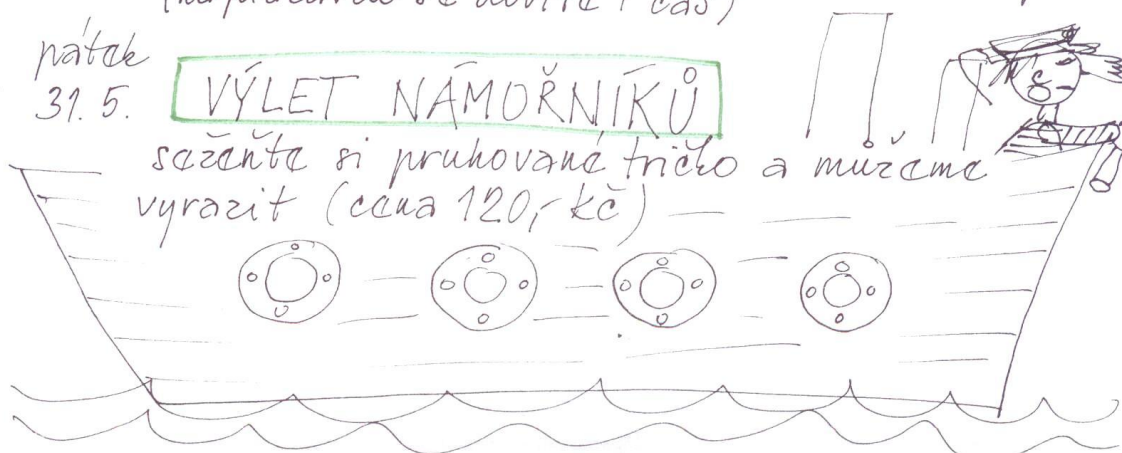 se dovíte i čas)
pátek
31. 5.
VÝLET NÁMOŘNÍKŮ
sežeňte si pruhované tričko a můžeme
vyrazit (cena 120,- kč)